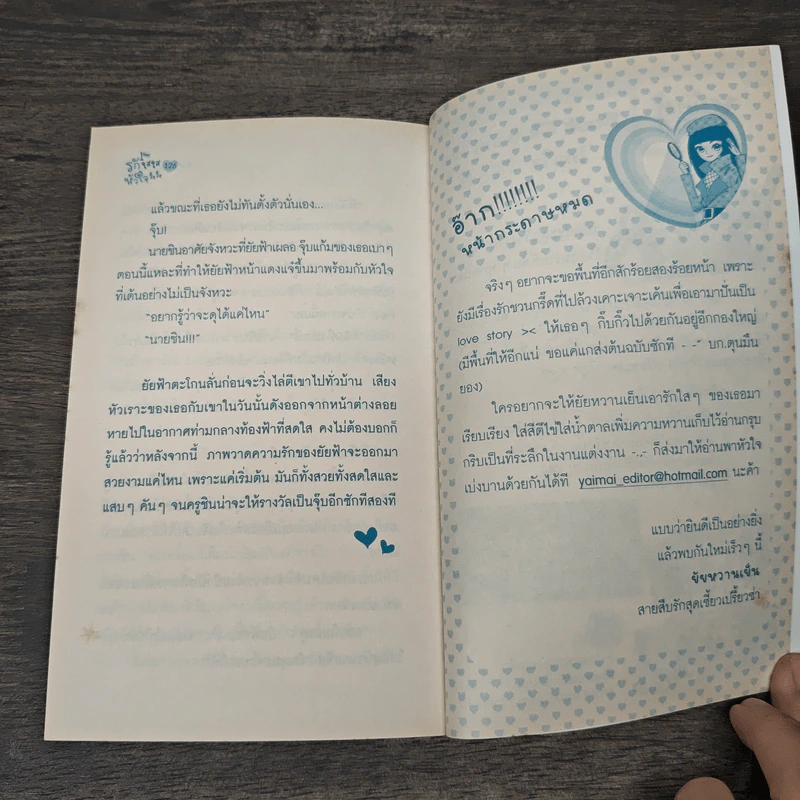 รักใสใส
หัวใจ
126
แล้วขณะที่เธอยังไม่ทันตั้งตัวนั่นเอง...
จุ๊บ!
นายชินอาศัยจังหวะที่ยัยฟ้าเผลอ จุ๊บแก้มของเธอเบาๆ
ตอนนี้แหละที่ทำให้ยัยฟ้าหน้าแดงแจ๋ขึ้นมาพร้อมกับหัวใจ
ที่เต้นอย่างไม่เป็นจังหวะ
"อยากรู้ว่าจะดุได้แค่ไหน"
"นายชิน!!!"
ยัยฟ้าตะโกนลั่นก่อนจะวิ่งไล่ตีเขาไปทั่วบ้าน เสียง
หัวเราะของเธอกับเขาในวันนั้นดังออกจากหน้าต่างลอย
หายไปในอากาศท่ามกลางท้องฟ้าที่สดใส คงไม่ต้องบอกก็
รู้แล้วว่าหลังจากนี้ ภาพวาดความรักของยัยฟ้าจะออกมา
สวยงามแค่ไหน เพราะแค่เริ่มต้น มันก็ทั้งสวยทั้งสดใสและ
แสบๆ คันๆ จนครูชินน่าจะให้รางวัลเป็นจุ๊บอีกซักทีสองที
อ๊าก!!!!!!!!
หน้ากระดาษหมด
จริงๆ อยากจะขอพื้นที่อีกสักร้อยสองร้อยหน้า เพราะ
ยังมีเรื่องรักชวนกรี๊ดที่ไปล้วงเคาะเจาะเค้นเพื่อเอามาปั่นเป็น
love story >< ให้เธอๆ กิ๊บกิ๊วไปด้วยกันอยู่อีกกองใหญ่
(มีพื้นที่ให้อีกแน่ ขอแค่แกส่งต้นฉบับซักที - -" บก.ตุนมีน
ยอง)
ใครอยากจะให้ยัยหวานเย็นเอารักใสๆ ของเธอมา
เรียบเรียง ใส่สีตีไข่ใส่น้ำตาลเพิ่มความหวานเก็บไว้อ่านกรุบ
กริบเป็นที่ระลึกในงานแต่งงาน -.,- ก็ส่งมาให้อ่านพาหัวใจ
เบ่งบานด้วยกันได้ที่ yaimai_editor@hotmail.com นะค้า
แบบว่ายินดีเป็นอย่างยิ่ง
แล้วพบกันใหม่เร็วๆ นี้
ยัยหวานเย็น
สายสืบรักสุดเซี้ยวเปรี้ยวซ่า